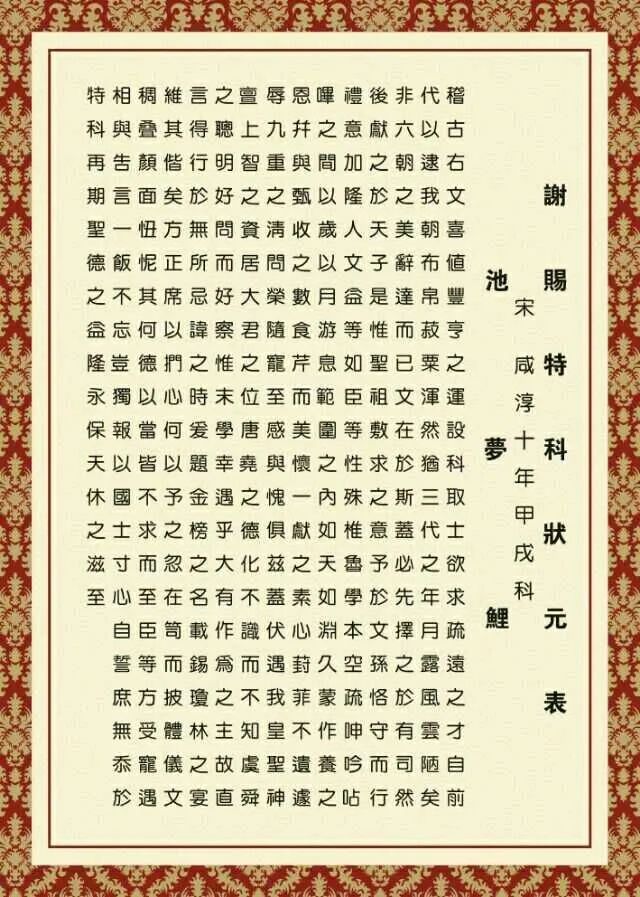 謝賜特科狀元表
宋 咸淳十年甲戌科
池夢鯉
稽古右文喜値豐亨之運設科取士欲求疏遠之才自前
代以逮我朝布帛菽粟渾然猶三代之年月露風雲陋矣
非六朝之美辭達而已文在於斯蓋必先擇之於有司然
後獻之於天子是惟聖祖敷求之意予於文孫恪守而行
禮意加隆人文益等如臣等性殊椎魯學本空疏呻吟呫
嗶之間以歲以月游息範圍之內如天如淵久蒙作養之
恩幷與甄收之數食芹而美懷一獻之素心葑菲不遺遽
辱九重之淸問榮隨寵至感與愧俱茲蓋伏遇我皇聖神
亶上智之資居大君之位唐堯之德化不識而不知虞舜
之聰明好問而好察惟末學幸遇乎大有作爲之主故直
言得行於無所忌諱之時爰題金榜之名載錫瓊林之宴
維其偕矣方正席以捫心何以予之忽在笥而披體儀文
稠叠顏面忸怩其何德以當皆不求而至臣等方受寵遇
相與告言一飯不忘豈獨報以國士寸心自誓庶無忝於
特科再期聖德之益隆永保天休之滋至